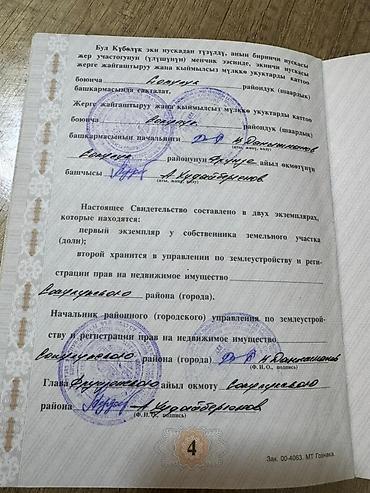 Бул Күбөлүк эки нускадан түзүлүп, анын биринчи нускасы
жер участогунун (үлүшүнүн) менчик ээсинде, экинчи нускасы
жерге жайгаштыруу жана кыймылсыз мүлккө укуктарды каттоо
боюнча Сокулук райондук (шаардык)
башкармасында сакталат.
Жерге жайгаштыруу жана кыймылсыз мүлккө укуктарды каттоо
боюнча Сокулук райондук (шаардык)
башкармасынын начальниги
(аты, жөнү, колу)
Сокулук районунун Фрунзе айыл өкмөтүнүн
башчысы А. Худайбергенов
(аты, жөнү, колу)
Настоящее Свидетельство составлено в двух экземплярах,
которые находятся:
первый экземпляр у собственника земельного участка
(доли);
второй хранится в управлении по землеустройству и реги-
страции прав на недвижимое имущество
Сокулукского района (города).
Начальник районного (городского) управления по землеустрой-
ству и регистрации прав на недвижимое имущество
Сокулукского района (города)
(Ф. И. О., подпись)
Глава Фрунзенского айыл окмоту Сокулукского
района А. Худайбергенов
(Ф. И. О., подпись)
4
Зак. 00-4063. МТ Гознака.